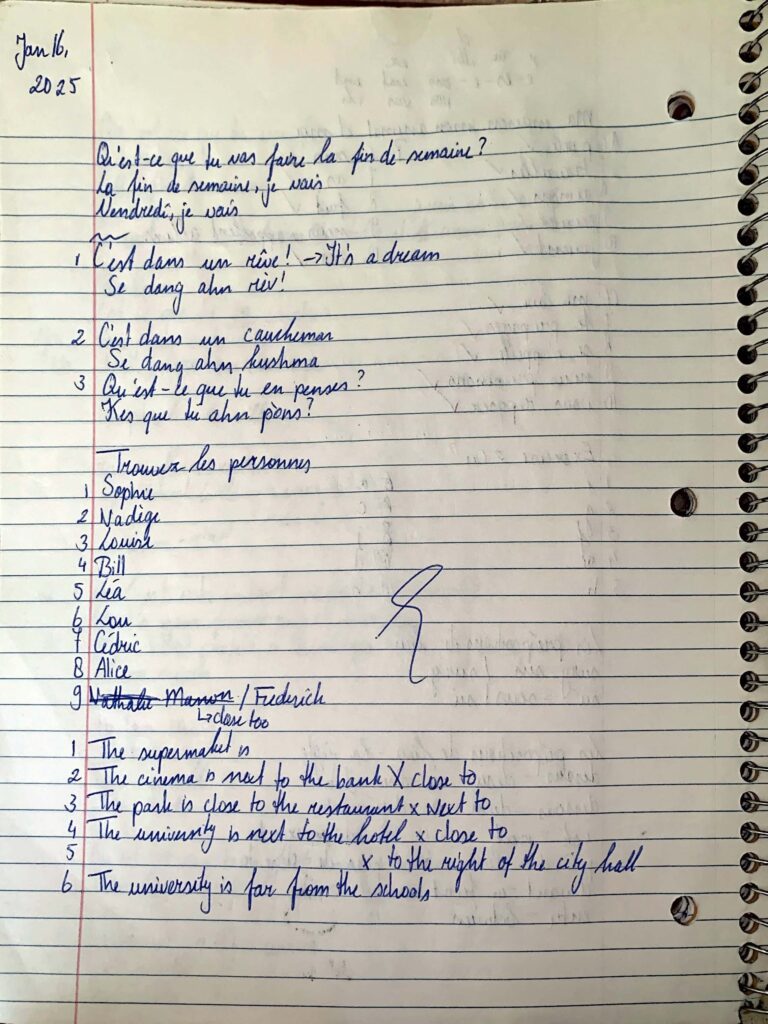 Jan 16,
2025
Qu'est-ce que tu vas faire la fin de semaine?
La fin de semaine, je vais
Vendredi, je vais
1 C'est dans un rêve! → It's a dream
Se dang ahn rèv!
2 C'est dans un cauchemar
Se dang ahn kushma
3 Qu'est-ce que tu en penses?
Kes que tu ahn pòns?
Trouvez les personnes
1 Sophie
2 Nadège
3 Louise
4 Bill
5 Léa
6 Lou
7 Cédric
8 Alice
9 Nathalie Manon / Frederich
↳ close too
1 The supermaket is
2 The cinema is next to the bank X close to
3 The park is close to the restaurant x Next to
4 The university is next to the hotel x close to
5 x to the right of the city hall
6 The university is far from the schools